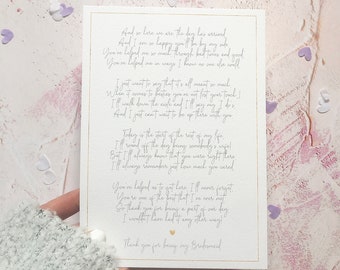 And so here we are the day has arrived
And I am so happy you'll be by my side
You've helped me so much through bad times and good
You've helped me in ways I knew no one else could
I just want to say that it's all meant so much
When it comes to besties you are that
I'll walk down the aisle and I'll say my I do's
And I just can't wait to be up there with you
Today is the start of the rest of my life
I'll round off the day being somebody's wife
But I'll always know that you were right there
I'll always remember just how much you cared
You've helped us to get here I'll never forget
You're one of the best that I've ever met
So thank you for being a part of our day
I wouldn't have had it any other way
Thank you for being my Bridesmaid